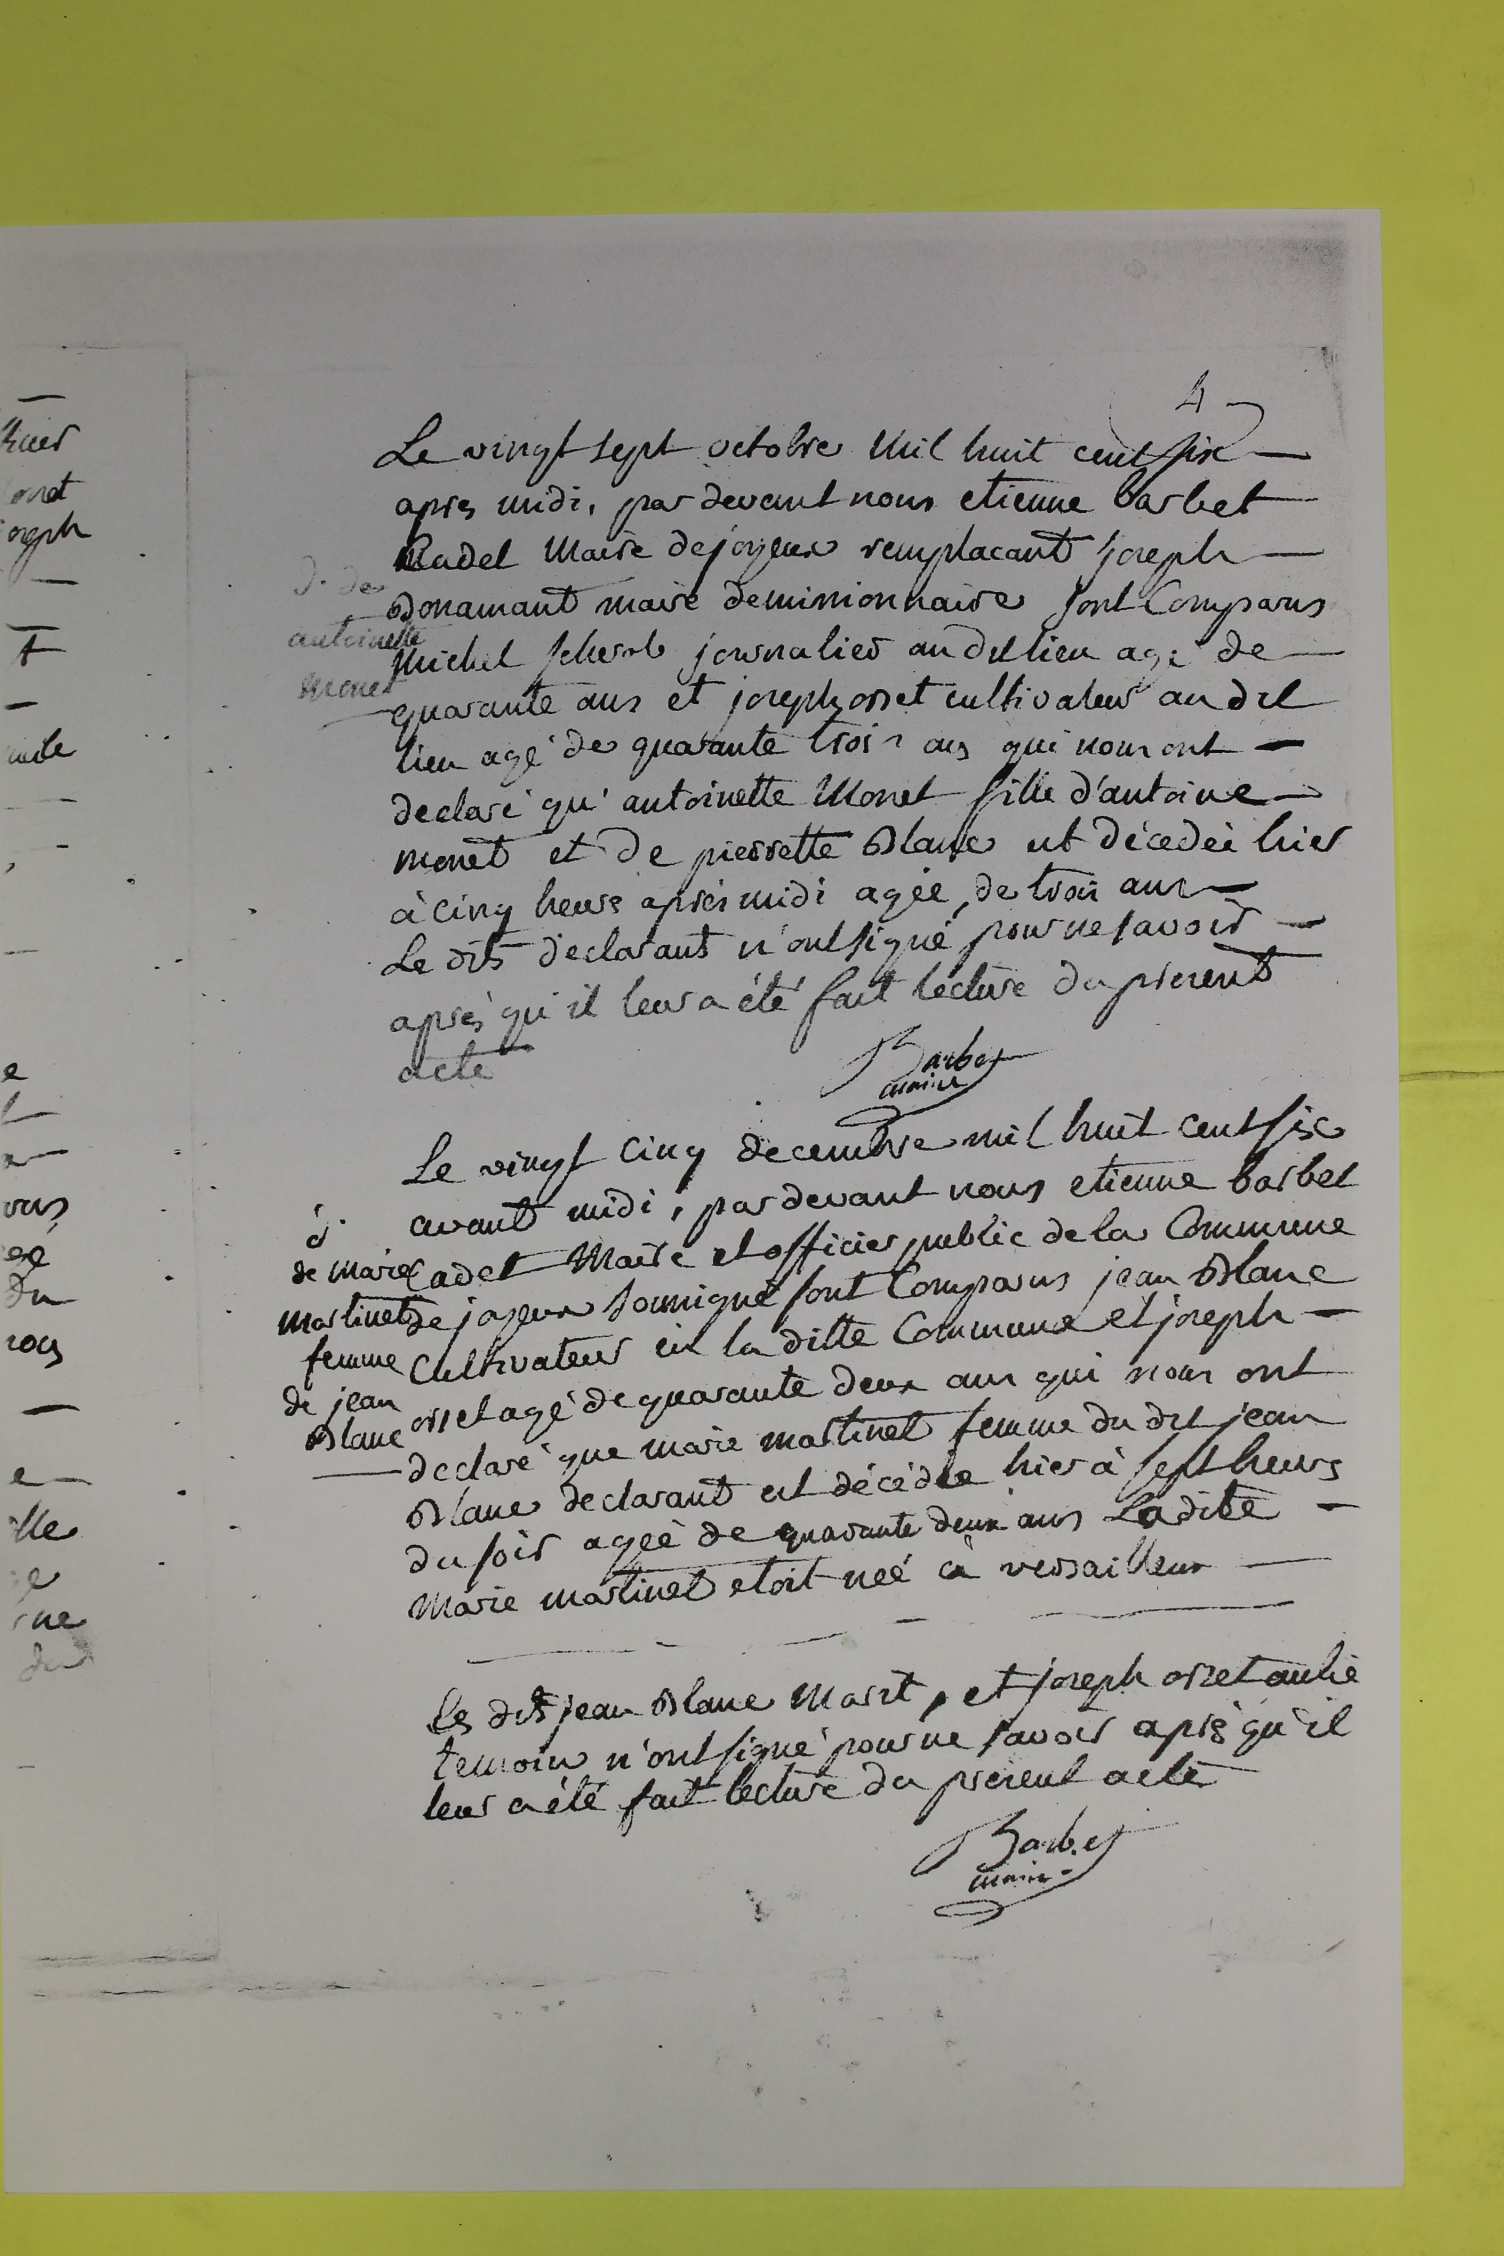 4
Le vingt sept octobre mil huit cent six
apres midi, par devant nous etienne barbet
Cadet maire de joyeux remplacant joseph
Bonamant maire demissionnaire sont Comparus
michel journalier au dit lieu agé de
quarante ans et joseph orset cultivateur au dit
lieu agé de quarante trois ans qui nous ont
declaré qu'antoinette Monet fille d'antoine
monet et de pierrette Blanc est décedée hier
à cinq heure après midi agée de trois ans
Le dits declarants n'ont signé pour ne savoir
après qu'il leur a été fait lecture du present
acte
Barbet
maire
d. de
antoinette
monet
Le vingt cinq decembre mil huit cent six
avant midi, par devant nous etienne barbet
Cadet Maire et officier public de la Commune
de joyeux soussigné sont Comparus jean Blanc
Cultivateur en la ditte Commune et joseph
orset agé de quarante deux ans qui nous ont
declaré que marie martinet femme du dit jean
Blanc declarant est décédée hier à sept heurs
du soir agée de quarante deux ans Ladite
Marie martinet etoit neé à versailleux
d.
de marie
martinet
femme
de jean
Blanc
les dits jean Blanc Marit, et joseph orset autre
temoin n'ont signé pour ne savoir après qu'il
leur a été fait lecture du present acte
Barbet
maire